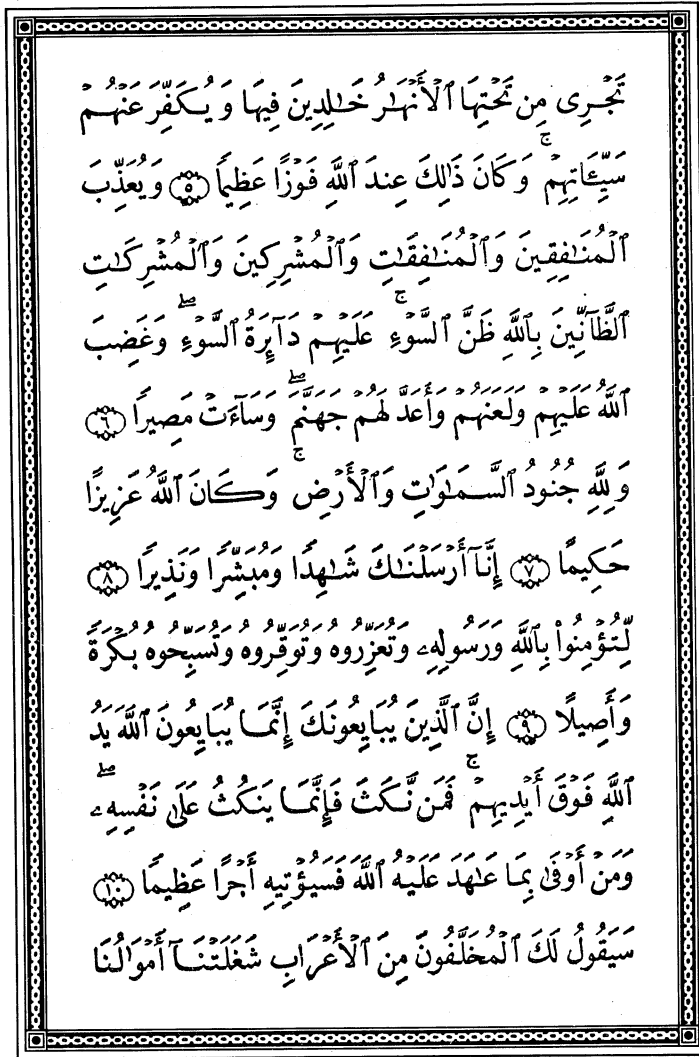 تَجْرِى مِن تَحْتِهَا ٱلْأَنْهَـٰرُ خَـٰلِدِينَ فِيهَا وَيُكَفِّرَ عَنْهُمْ
سَيِّـَٔاتِهِمْ ۚ وَكَانَ ذَٰلِكَ عِندَ ٱللَّهِ فَوْزًا عَظِيمًا ﴿٥﴾ وَيُعَذِّبَ
ٱلْمُنَـٰفِقِينَ وَٱلْمُنَـٰفِقَـٰتِ وَٱلْمُشْرِكِينَ وَٱلْمُشْرِكَـٰتِ
ٱلظَّآنِّينَ بِٱللَّهِ ظَنَّ ٱلسَّوْءِ ۚ عَلَيْهِمْ دَآئِرَةُ ٱلسَّوْءِ ۖ وَغَضِبَ
ٱللَّهُ عَلَيْهِمْ وَلَعَنَهُمْ وَأَعَدَّ لَهُمْ جَهَنَّمَ ۖ وَسَآءَتْ مَصِيرًا ﴿٦﴾
وَلِلَّهِ جُنُودُ ٱلسَّمَـٰوَٰتِ وَٱلْأَرْضِ ۚ وَكَانَ ٱللَّهُ عَزِيزًا
حَكِيمًا ﴿٧﴾ إِنَّآ أَرْسَلْنَـٰكَ شَـٰهِدًا وَمُبَشِّرًا وَنَذِيرًا ﴿٨﴾
لِّتُؤْمِنُوا۟ بِٱللَّهِ وَرَسُولِهِۦ وَتُعَزِّرُوهُ وَتُوَقِّرُوهُ وَتُسَبِّحُوهُ بُكْرَةً
وَأَصِيلًا ﴿٩﴾ إِنَّ ٱلَّذِينَ يُبَايِعُونَكَ إِنَّمَا يُبَايِعُونَ ٱللَّهَ يَدُ
ٱللَّهِ فَوْقَ أَيْدِيهِمْ ۚ فَمَن نَّكَثَ فَإِنَّمَا يَنكُثُ عَلَىٰ نَفْسِهِۦ ۖ
وَمَنْ أَوْفَىٰ بِمَا عَـٰهَدَ عَلَيْهُ ٱللَّهَ فَسَيُؤْتِيهِ أَجْرًا عَظِيمًا ﴿١٠﴾
سَيَقُولُ لَكَ ٱلْمُخَلَّفُونَ مِنَ ٱلْأَعْرَابِ شَغَلَتْنَآ أَمْوَٰلُنَا